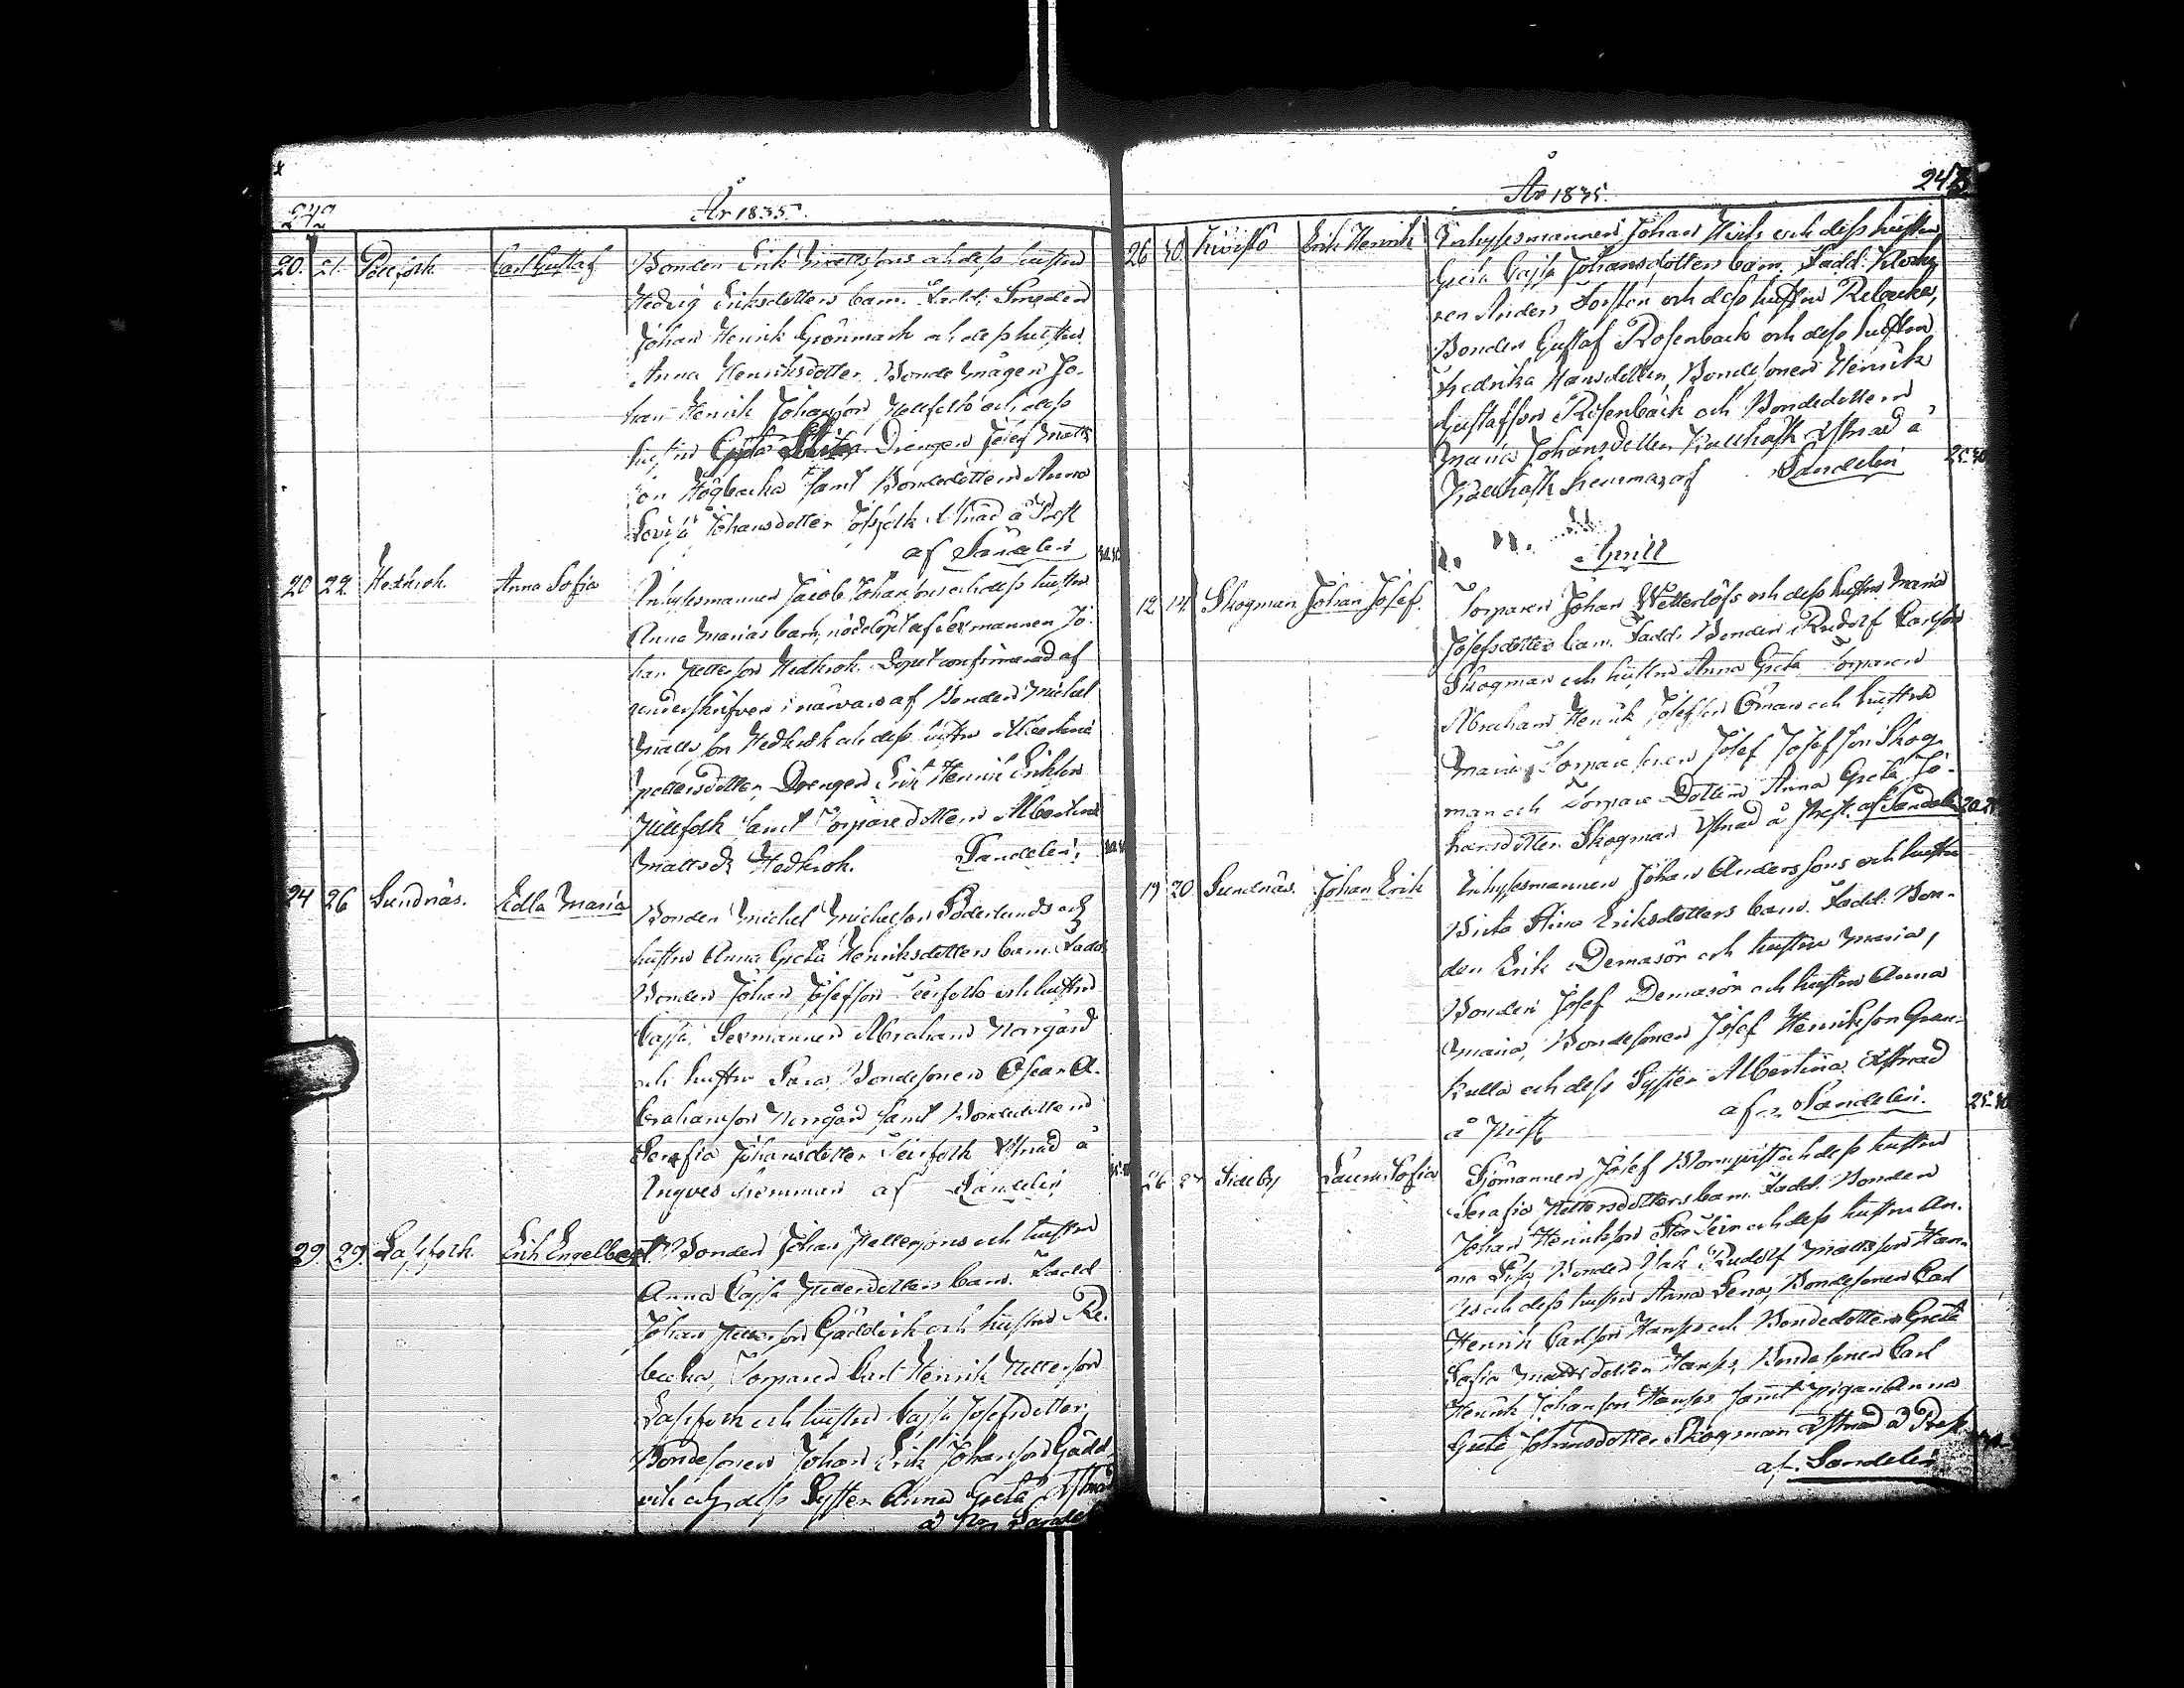 242
År 1835.
20. 21. Carl Gustaf Bonden Erik Mattssons och dess hustru
Hedvig Eriksdotters barn. Fadd: Smeden
Johan Henrik Grönmark och dess hustru
Anna Henriksdotter, Bonde Mågen Jo-
han Henrik Johansson och dess
hustru Greta Drengen Josef Matts
son Högbacka samt Bondedottern Anna
Lovisa Johansdotter à Prest
af Sandelin
20 22 Hedkrok Anna Sofia Inhysesmannen Jacob Johanssons och dess hustru
Anna Marias barn, nöddöpt af Sexmannen Jo-
han Petterson Hedkrok. Dopet confirmerad af
underskrifven i närvaro af Bonden Michel
Mattsson Hedkrok och dess hustru Albertina
Pettersdotter, Drengen Erik Henrik Eriksson
samt Torparedottern Albertina
Mattsdr Hedkrok. Sandelin.
24 26 Sundnäs. Edla Maria Bonden Michel Michelson Söderlunds och
hustru Anna Greta Henriksdotters barn. Fadd:
Bonden Johan Josefson och hustru
Cajsa, Sexmannen Abraham Norrgård
och hustru Sara Bondesonen Oscar A-
brahamson Norrgård samt Bondedottern
Serafia Johansdotter à
Ingves hemman af Sandelin
29. 29. Lassfolk Erik Engelbert Bonden Johan Pettersons och hustru
Anna Cajsa Pettersdotters barn. Fadd
Johan Petterson Gäddvik och hustru Re-
becka, Torparen Carl Henrik Petterson
Lassfolk och hustru Cajsa Josefsdotter,
Bondesonen Johan Erik Johanson Gädd-
vik och dess Syster Anna Greta
à Sandelin
År 1835.
26 30. Erik Henrik Inhysesmannen Johan och dess hustru
Greta Cajsa Johansdotters barn. Fadd: Klocka-
ren Anders Forsten och dess hustru Rebecka,
Bonden Gustaf Rosenback och dess hustru
Fredrika Hansdotter, Bondesonen Henrik
Gustafson Rosenback och Bondedottern
Maria Johansdotter à
hemman af Sandelin 25-30
April
12 14 Skogman Johan Josef. Torparen Johan Wetterlöfs och dess hustru Maria
Josefsdotters barn. Fadd: Bonden Rudolf Carlson
Skogman och hustru Anna Greta, Torparen
Abraham Henrik Josefson Öman och hustru
Maria, Torparesonen Josef Josefson Skog-
man och Torpare Dottern Anna Greta Jo-
hansdotter Skogman à Prest. af Sandelin
19 20. Sundnäs. Johan Erik Inhysesmannen Johan Anderssons och hustru
Brita Stina Eriksdotters barn. Fadd: Bon-
den Erik Demasör och hustru Maria,
Bonden Josef Demasör och hustru Anna
Maria, Bondesonen Josef Henrikson Gran-
kulla och dess Syster Albertina
à Prest af Sandelin. 25-30
26 27 Sideby Laura Sofia Sjömannen Josef Blomqvist och dess hustru
Serafia Pettersdotters barn. Fadd. Bonden
Johan Henrikson Stor Teir och dess hustru An-
na Lisa, Bonden Isak Rudolf Mattsson Han-
ses och dess hustru Anna Lena, Bondesonen Carl
Henrik Carlson Hanses och Bondedottern Greta
Sofia Mattsdotter Hanses, Bondesonen Carl
Henrik Johanson Hanses samt pigan Anna
Greta Johansdotter Skogman à Prest
af Sandelin